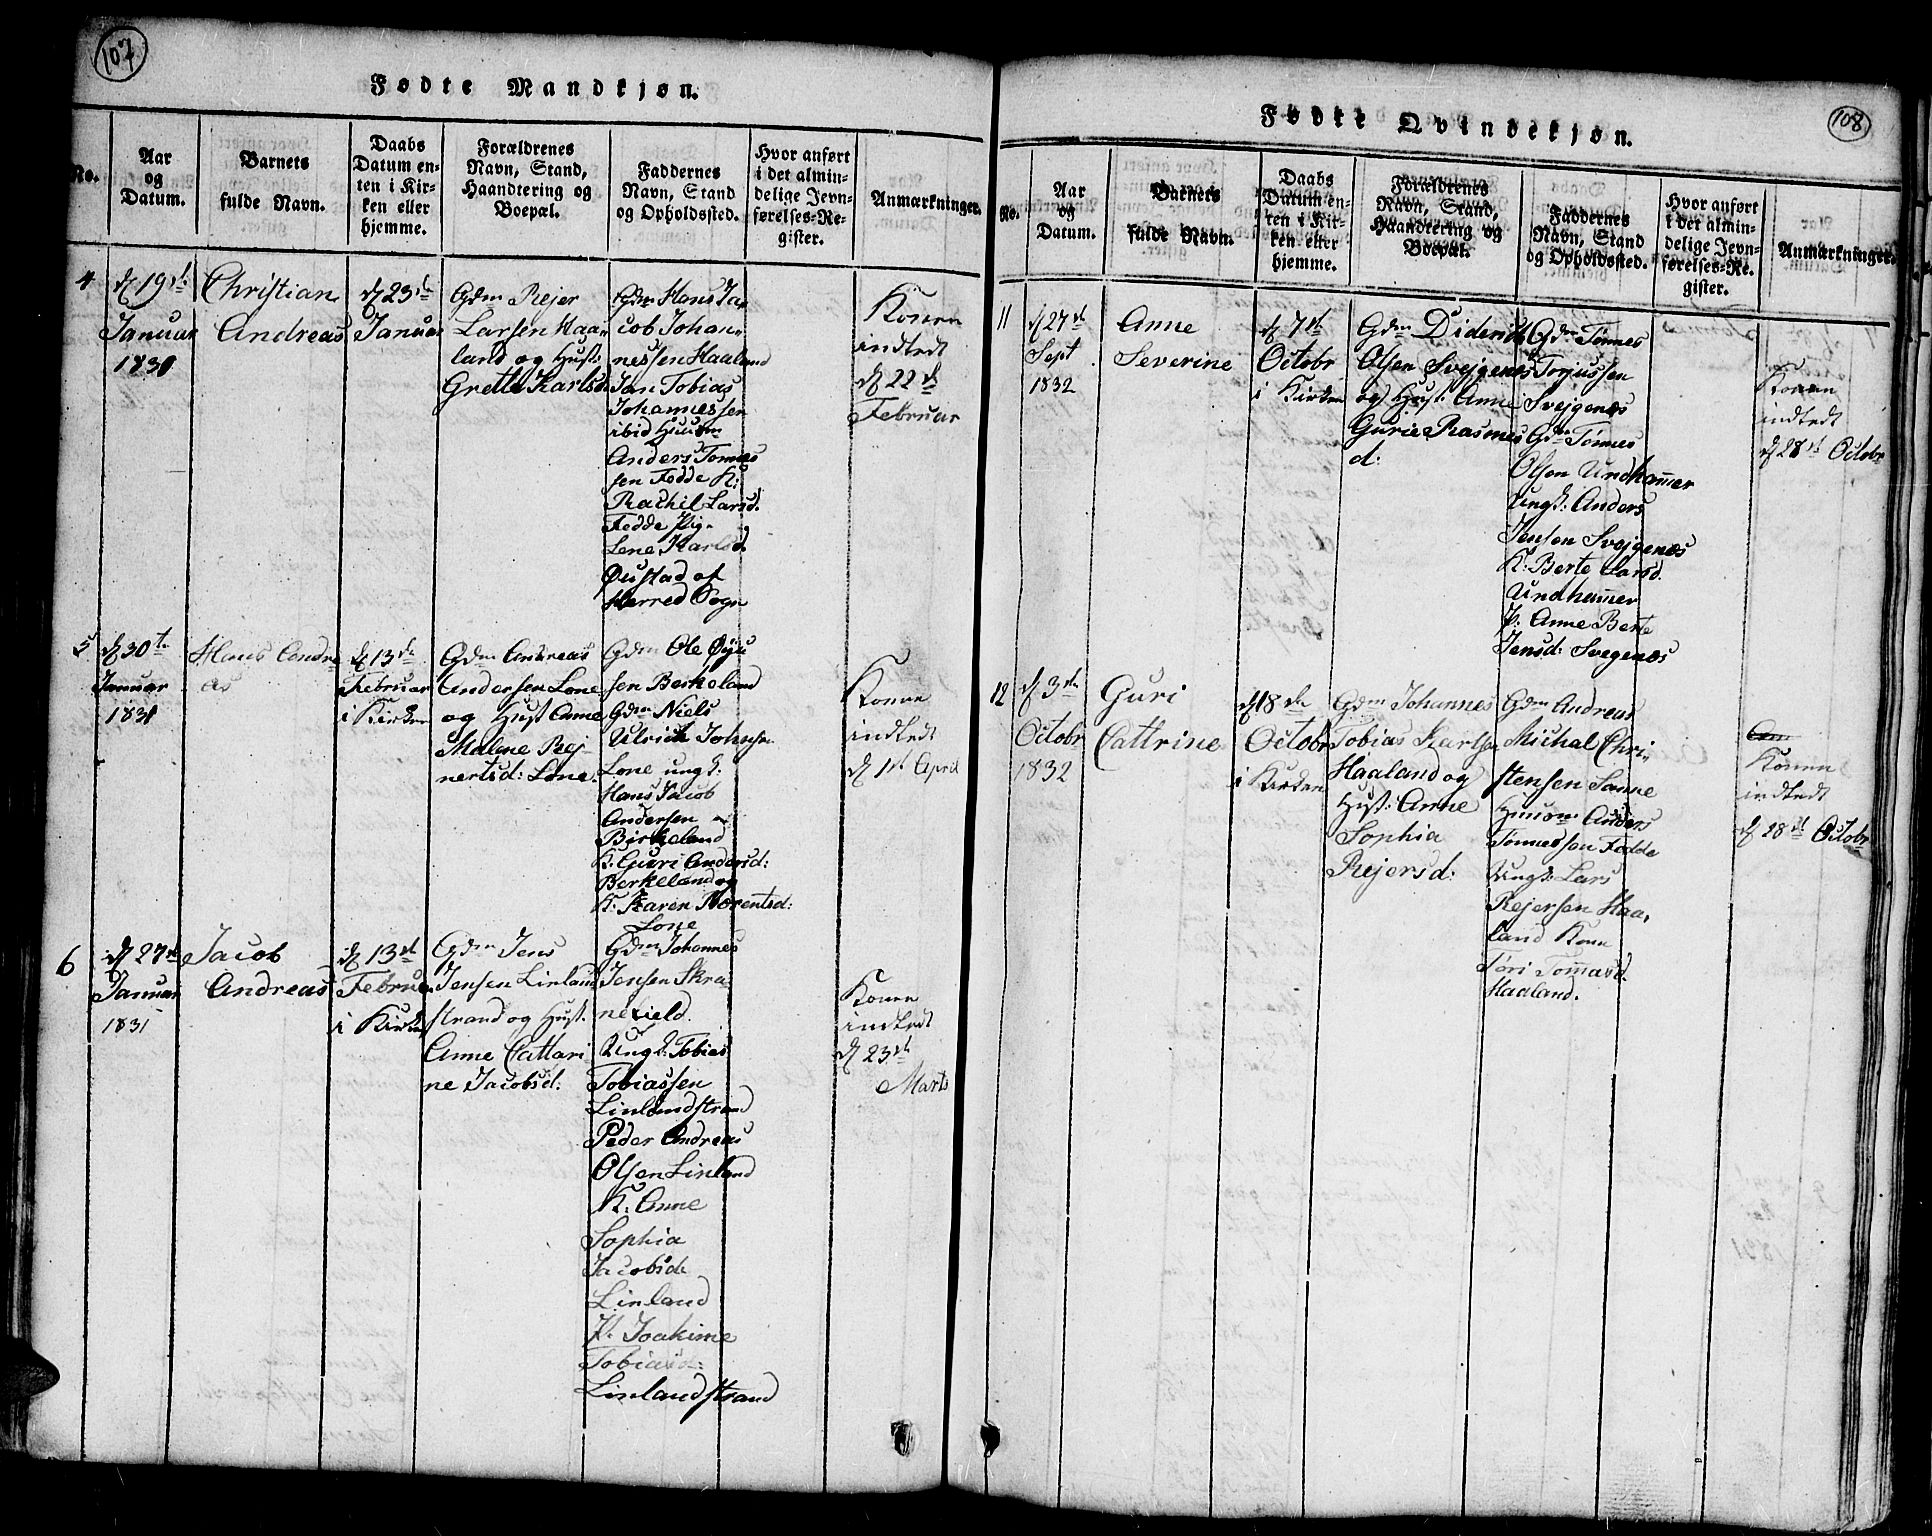 107
Fødte Mandkjøn.
No.
Aar
og
Datum.
Barnets
fulde Navn.
Daabs
Datum en-
ten i Kir-
ken eller
hjemme.
Forældrenes
Navn, Stand,
Haandtering og
Boepæl.
Faddernes
Navn, Stand
og Opholdssted.
Hvor anført
i det almin-
delige Jevn-
førelses-Re-
gister.
Anmærkninger.
4
d 19de
Januar
1831
Christian
Andreas
d 23de
Januar
Gdm Rejer
Larsen Haa-
land og Hust:
Grethe Karlsd
Gdm Hans Ja-
cob Johan-
nessen Haaland
Jan Tobias
Johannessen
ibid Huusm
Anders Tønnes
sen Fedde K:
Rachil Larsd.
Fedde Pig-
Lene Karlsd.
Øustad af
Herred Sogn
Konen
indledt
d 22de
Februar
5
d 30te
Januar
1831
Hans Andre
as
d 13de
Februar
i Kirken
Gdm Andreas
Andersen Lone
og Hust Anne
Malene Rej-
nertsd: Lone.
Gdm Ole Øju
sen Berkeland
Gdm Niels
Ulrich Johnsn
Lone ungk:
Hans Jacob
Andersen
Birkeland
K. Guuri Andersd:
Berkeland og
K. Karen Børentsd:
Lone
Konen
indledt
d 1ste April
6
d 27de
Januar
1831
Jacob
Andreas
d 13de
Februar
i Kirken
Gdm Jens
Jensen Linland
strand og Hust.
Anne Cattari
ne Jacobsd:
Gdm Johannes
Jensen Skra
nefield.
Ungk: Tobias
Tobiassen
Linlandstrand
Peder Andreas
Olsen Linland
K. Anne
Sophia
Jacobsde
Linland
P. Joakime
Tobiasd:
Linlandstrand
Konen
indledt
d 23de
Marts
108
Fødte Qvindekjøn.
No.
Aar
og
Datum.
Barnets
fulde Navn.
Daabs
Datum en-
ten i Kir-
ken eller
hjemme.
Forældrenes
Navn, Stand,
Haandtering og
Boepæl.
Faddernes
Navn, Stand
og Opholdssted.
Hvor anført
i det almin-
delige Jevn-
førelses-Re-
gister.
Anmærkninger.
11
d 27de
Sept
1832
Anne
Severine
d 7de
Octobr
i Kirken
Gdm Diderik
Olsen Svejgenes
og Hust: Anne
Gurie Rasmes
d:
Gdm Tønnes
Torjussen
Svejgenæs
Gdm Tønnes
Olsen Undhammer
Ungk: Anders
Jensen Svejgenæs
K: Berte Larsd.
Undhammer
P: Anne Berte
Jensd: Svegenæs
Konen
indledt
d 28de Octobr
12
d 3de
Octobr
1832
Guri
Cattrine
d 18de
Octobr
i Kirken
Gdm Johannes
Tobias Karlsen
Haaland og
Hust: Anne
Sophia
Rejersd:
Gdm Andreas
Michal Chri-
stensen Sanne
Huusm Anders
Tønnessen Fedde
Ungk: Lars
Rejersen Haa-
land Kone
Siri Tommasd.
Haaland.
Konen
indledt
d 28de Octobr